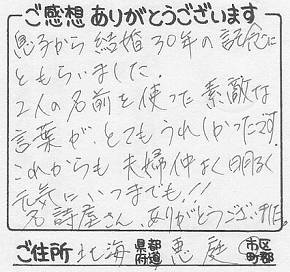 ご感想 ありがとうございます
息子から 結婚30年の記念に
ともらいました.
2人の名前を使った素敵な
言葉が、とてもうれしかったです.
これからも 夫婦仲よく明るく
元気にいつまでも!!
名詩屋さん、ありがとうございました。
ご住所 北海 都道府県 恵庭 市区町郡